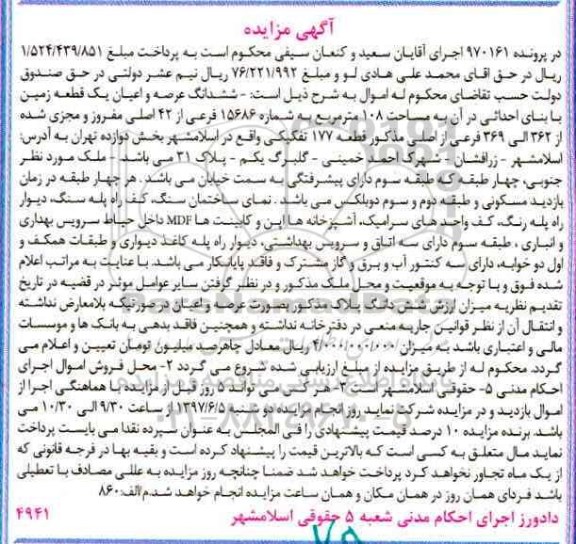 آگهی مزایده
در پرونده ۹۷۰۱۶۱ اجرای آقایان سعید و کنعان سیفی محکوم است به پرداخت مبلغ ۱/۵۲۴/۴۳۹/۸۵۱
ریال در حق اقای محمد علی هادی لو و مبلغ ۷۶/۲۲۱/۹۹۲ ریال نیم عشر دولتی در حق صندوق
دولت حسب تقاضای محکوم له اموال به شرح ذیل است: - ششدانگ عرصه و اعیان یک قطعه زمین
با بنای احداثی در آن به مساحت ۱۰۸ مترمربع به شماره ۱۵۶۸۶ فرعی از ۴۲ اصلی مفروز و مجزی شده
از ۳۶۲ الی ۳۶۹ فرعی از اصلی مذکور قطعه ۱۷۷ تفکیکی واقع در اسلامشهر بخش دوازده تهران به آدرس:
اسلامشهر - زرافشان - شهرک احمد خمینی - گلبرگ یکم - پلاک ۳۱ می باشد - ملک مورد نظر
جنوبی، چهار طبقه که طبقه سوم دارای پیشرفتگی به سمت خیابان می باشد . هر چهار طبقه در زمان
بازدید مسکونی و طبقه دوم و سوم دوبلکس می باشد . نمای ساختمان سنگ، کف راه پله سنگ، دیوار
راه پله رنگ، کف واحد های سرامیک، آشپزخانه ها اپن و کابینت ها MDF داخل حیاط سرویس بهداری
و انباری ، طبقه سوم دارای سه اتاق و سرویس بهداشتی، دیوار راه پله کاغذ دیواری و طبقات همکف و
اول دو خوابه، دارای سه کنتور آب و برق و گاز مشترک و فاقد پایانکار می باشد. با عنایت به مراتب اعلام
شده فوق و با توجه به موقعیت و محل ملک مذکور و در نظر گرفتن سایر عوامل موثر در قضیه در تاریخ
تقدیم نظریه میزان ارزش شش دانگ پلاک مذکور بصورت عرصه و اعیان در صورتیکه بلامعارض نداشته
و انتقال آن از نظر قوانین جاریه منعی در دفترخانه نداشته و همچنین فاقد بدهی به بانک ها و موسسات
مالی و اعتباری باشد به میزان ۴/۰۰۰/۰۰۰/۰۰۰ ریال معادل چاهرصد میلیون تومان تعیین و اعلام می
گردد. محکوم له از طریق مزایده از مبلغ ارزیابی شده شروع می گردد ۲- محل فروش اموال اجرای
احکام مدنی ۵- حقوقی اسلامشهر است ۳- هر کس می تواند ۵ روز قبل از مزایده با هماهنگی اجرا از
اموال بازدید و در مزایده شرکت نماید روز انجام مزایده دو شنبه ۱۳۹۷/۶/۵ از ساعت ۹/۳۰ الی ۱۰/۳۰ می
باشد. برنده مزایده ۱۰ درصد قیمت پیشنهادی را فی المجلس به عنوان سپرده نقدا می بایست پرداخت
نماید مال متعلق به کسی است که بالاترین قیمت را پیشنهاد کرده است و بقیه بها در فرجه قانونی که
از یک ماه تجاوز نخواهد کرد پرداخت خواهد شد ضمنا چنانچه روز مزایده به عللی مصادف با تعطیلی
باشد فردای همان روز در همان مکان و همان ساعت مزایده انجام خواهد شد.م/الف:۸۶۰
دادورز اجرای احکام مدنی شعبه ۵ حقوقی اسلامشهر ۴۹۴۱